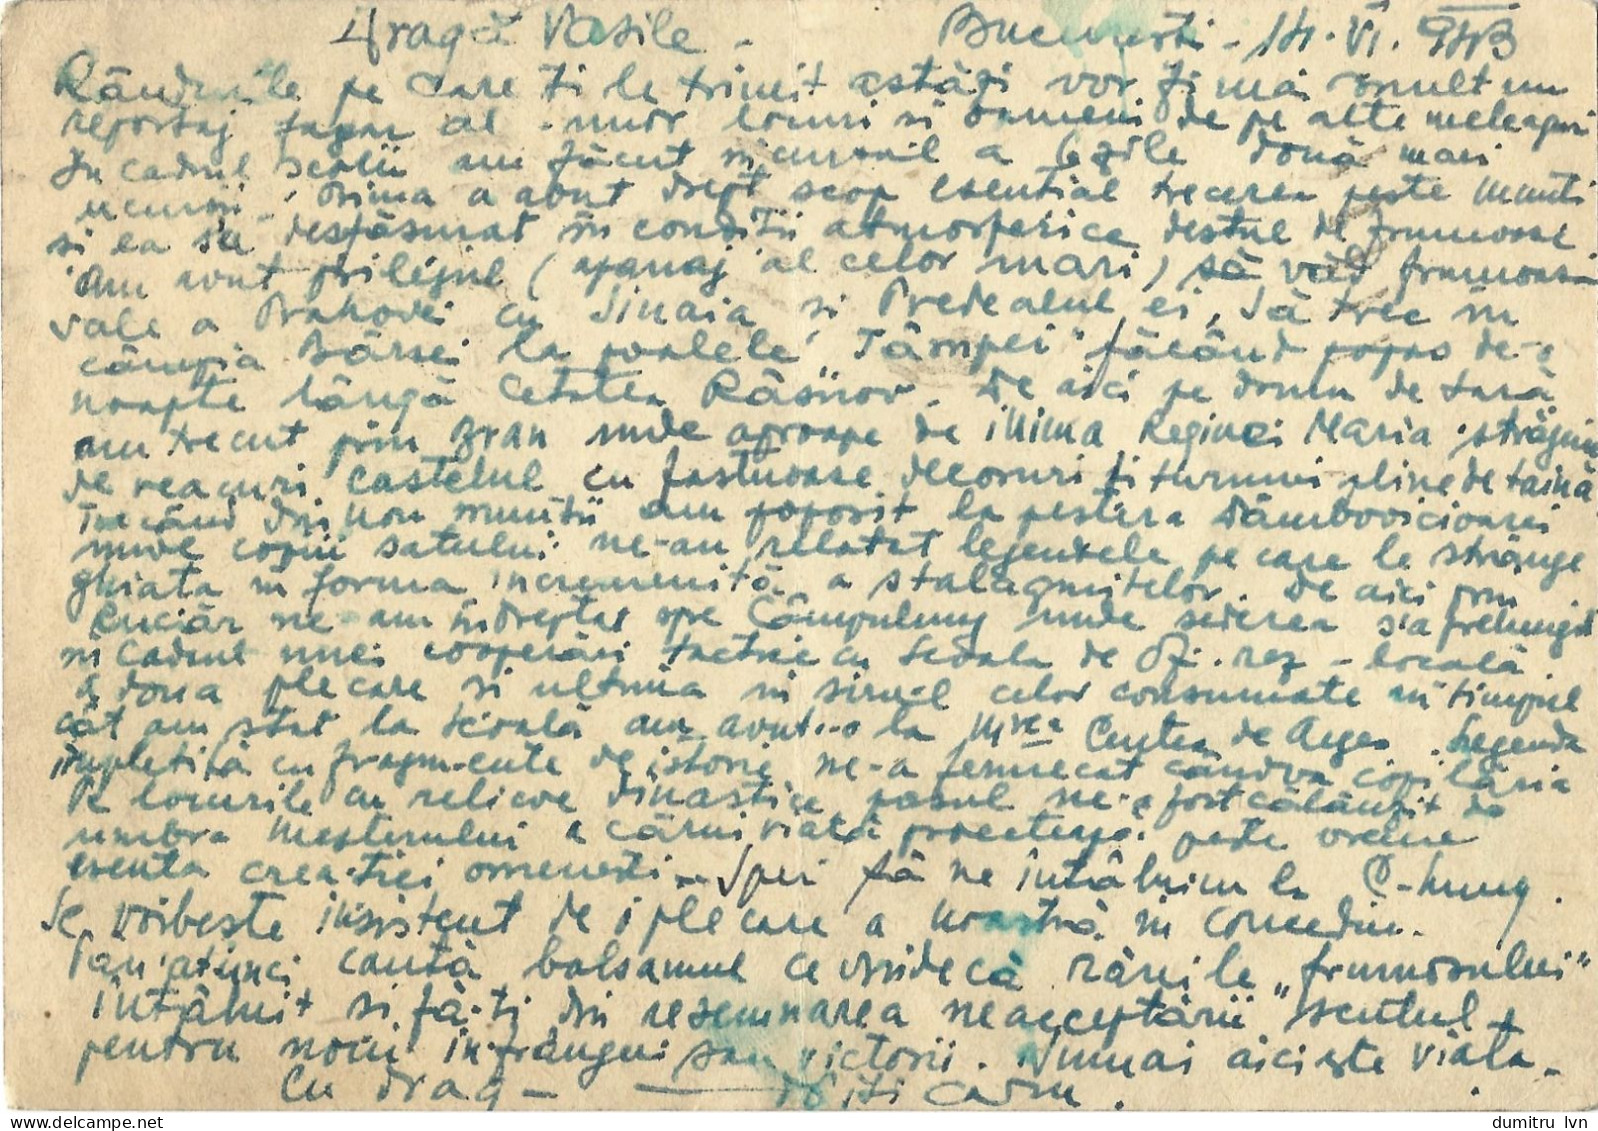 Dragă Vasile - București - 14.VI.943
Rândurile pe care ți le trimit astăzi vor fi mai mult un
reportaj fugar al unor locuri și oameni de pe alte meleaguri
În cadrul școlii am făcut în cursul a 6 zile două mari
excursii. Prima a avut drept scop esențial trecerea peste munți
și ea s-a desfășurat în condiții atmosferice destul de frumoase.
Am avut prilejul (apanaj al celor mari) să văd frumoasa
vale a Prahovei cu Sinaia și Predealul ei, să trec în
câmpia Bârsei la poalele "Tâmpei" făcând popas de
noapte lângă Cetatea Râșnov. De aici pe drum de țară
am trecut prin Bran unde aproape de inima Reginei Maria străjuie
de veacuri castelul cu fastuoase decoruri și turnuri pline de taină
Trecând din nou munții am poposit la peștera Dâmbovicioarei
unde copiii satului ne-au relatat legendele pe care le strânge
ghiața în forma încremenită a stalagmitelor. De aici prin
Rucăr ne-am îndreptat spre Câmpulung unde șederea s'a prelungit
în cadrul unei cooperări tactice cu Școala de Of. rez - locală
a doua plecare și ultima în șirul celor consumate în timpul
cât am stat la școală am avut-o la Curtea de Argeș. Legenda
împletită cu fragmente de istorie ne-a fermecat cândva copilăria
Pe locurile cu relicve dinastice pasul ne-a fost călăuzit de
umbra Meșterului a cărui viață proectează peste vreme
esența creației omenești - Sper să ne întâlnim la C-lung.
Se vorbește insistent de plecarea noastră în concediu.
Pân'atunci caută balsamul ce vindecă rănile "frumosului"
întâlnit și fă-ți din resemnarea neacceptării scutul
pentru noui înfrângeri sau victorii. Numai aici este viața.
Cu drag -